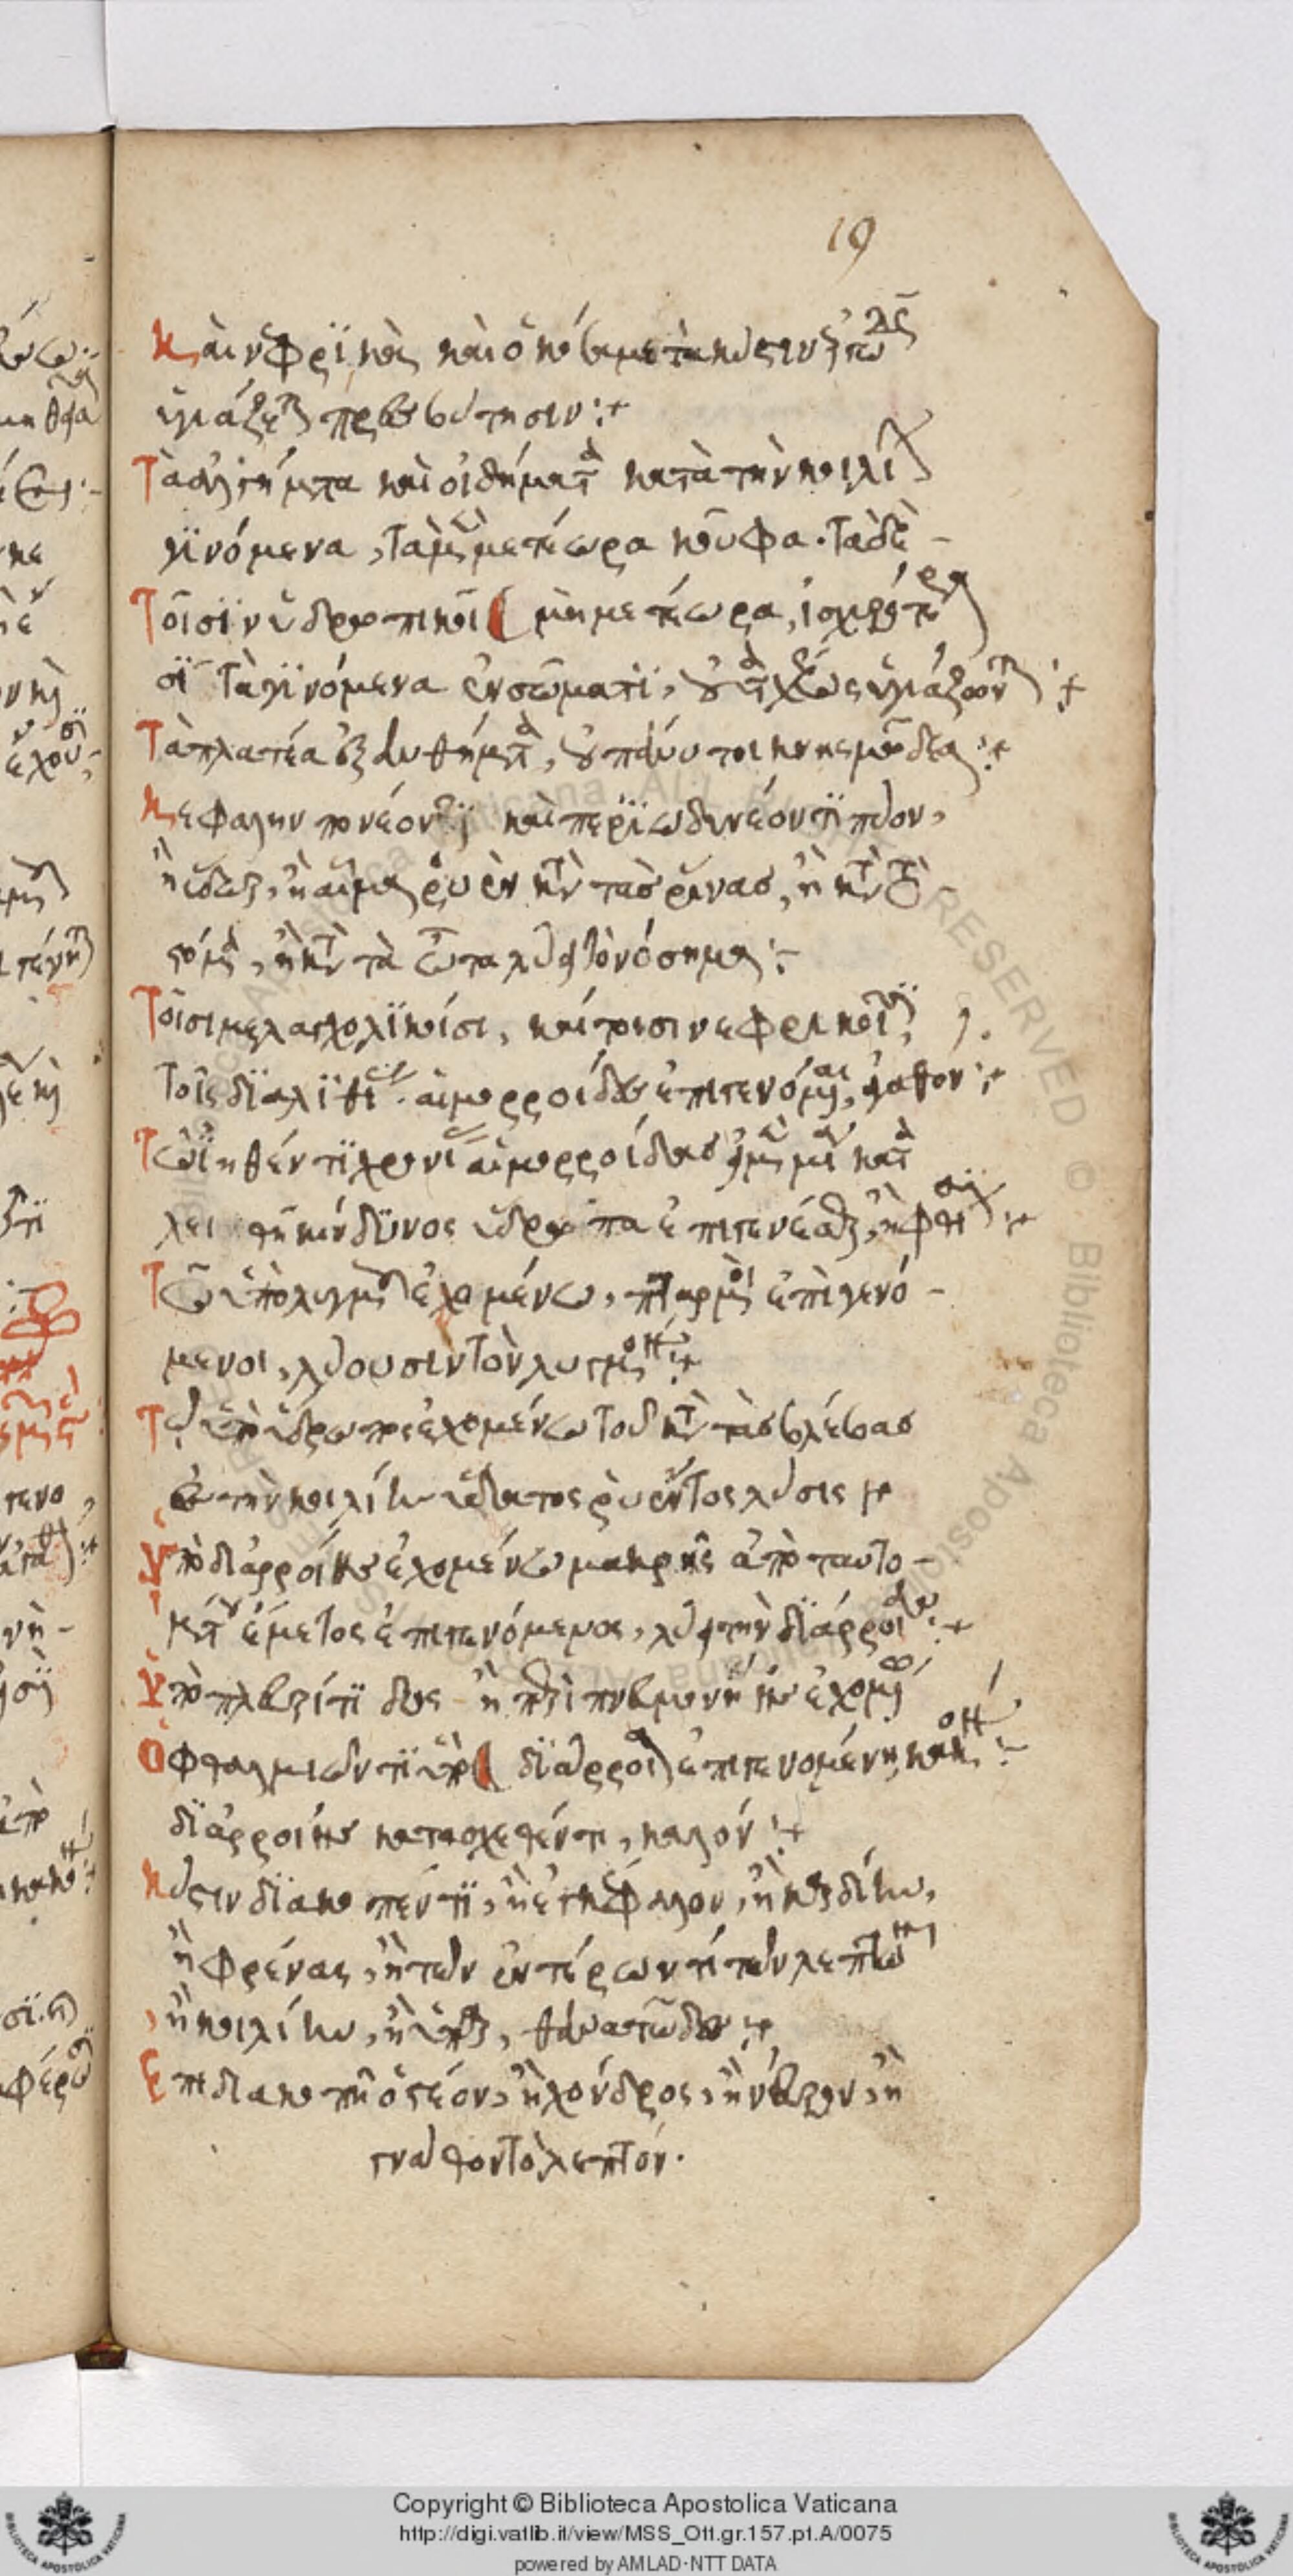 19
Καὶ νεφρϊκὰ καὶ ὁκόσα μετὰ κύστιν ἐργωδῶς
ὑγιάζεται πρεσβύτησιν:+
Τὰ ἀλγήματα καὶ οἰδήματα κατὰ τὴν κοιλίην
γϊνόμενα, τὰ μὲν μετέωρα κοῦφα. τὰ δὲ
μὴ μετέωρα, ἰσχυρότερα
Τοῖσϊν ὑδρωπικοῖσι
τὰ γϊνόμενα ἐν σώματϊ, οὐ ταχέως ὑγιάζονται:+
Τὰ πλατέα ἐξανθήματα, οὐ πάνυ τοι κνησμώδεα:+
Κεφαλὴν πονέοντϊ καὶ περϊωδυνέοντϊ πῦον,
ἢ ὕδωρ, ἢ αἷμα ῥυὲν κατὰ τὰς ῥῖνας, ἢ κατὰ τὸ
στόμα, ἢ κατὰ τὰ ὦτα λύει τὸ νόσημα:-
Τοῖσι μελαγχολϊκοῖσι, καὶ τοῖσι νεφριτικοῖσϊ,
αἱμορροΐδες ἐπιγενόμεναι, ἀγαθόν:+
Τῷ ἰηθέντϊ χρονίας αἱμορροΐδας
κίνδϋνος ὕδρωπα ἐπιγενέσθαι, ἢ φθίσϊν:+
Τῷ ὑπὸ λυγμοῦ ἐχομένω, πταρμοὶ ἐπιγενό-
μενοι, λύουσιν τὸν λυγμόν:+
Τῷ ὑπὸ ὕδρωπος ἐχομένω τοῦ κατὰ τὰς φλέβας
ἐς τὴν κοιλίην ὕδατος ῥυέντος λύσις:+
Ὑπὸ διαρροίης ἐχομένω μακρῆς ἀπὸ ταυτο-
μάτου ἔμετος ἐπιγενόμενος, λύει τὴν δϊάρροιαν:+
Ὑπὸ πλευρίτϊδος ἢ περιπνευμονίης ἐχομένω
διάρροια ἐπιγενομένη, κακόν:-
Ὀφθαλμιῶντϊ ὑπὸ
δϊαρροίης κατασχεθέντι, καλόν:+
Κύστιν δϊακοπέντϊ, ἢ ἐγκέφαλον, ἢ καρδίην,
ἢ φρένας, ἢ τῶν ἐντέρων τι τῶν λεπτῶν
ἢ κοιλίην, ἢ ἧπαρ, θανατῶδες:+
Ἐπὴν διακοπῇ ὀστέον, ἢ χόνδρος, ἢ νεῦρον, ἢ
γνάθου τὸ λεπτόν.
Copyright © Biblioteca Apostolica Vaticana
http://digi.vatlib.it/view/MSS_Ott.gr.157.pt.A/0075
powered by AMLAD-NTT DATA